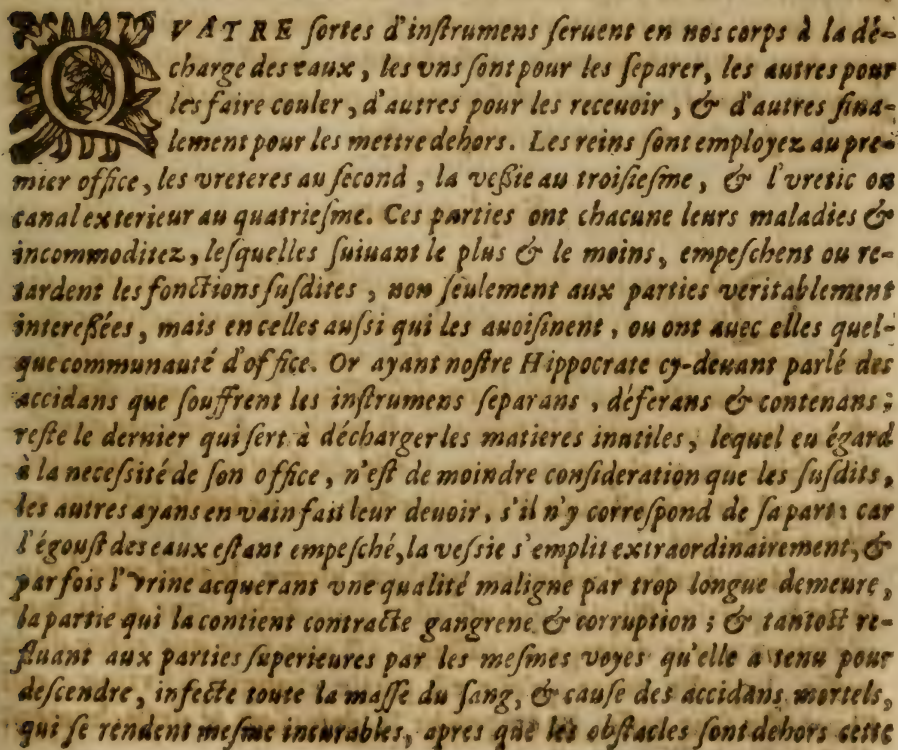 QVATRE ſortes d'inſtrumens ſeruent en nos corps à la dé-
charge des eaux, les vns ſont pour les ſeparer, les autres pour
les faire couler, d'autres pour les receuoir, & d'autres fina-
lement pour les mettre dehors. Les reins ſont employez au pre-
mier office, les vreteres au ſecond, la veßie au troiſieſme, & l'vretic ou
canal exterieur au quatrieſme. Ces parties ont chacune leurs maladies &
incommoditez, leſquelles ſuiuant le plus & le moins, empeſchent ou re-
tardent les fonctions ſuſdites, non ſeulement aux parties veritablement
intereßées, mais en celles auſsi qui les auoiſinent, ou ont auec elles quel-
que communauté d'office. Or ayant noſtre Hippocrate cy-deuant parlé des
accidans que ſouffrent les inſtrumens ſeparans, déferans & contenans;
reſte le dernier qui ſert à décharger les matieres inutiles, lequel eu égard
à la neceſsité de ſon office, n'eſt de moindre conſideration que les ſuſdits,
les autres ayans en vain fait leur deuoir, s'il n'y correſpond de ſa part: car
l'égouſt des eaux eſtant empeſché, la veſsie s'emplit extraordinairement, &
par fois l'vrine acquerant vne qualité maligne par trop longue demeure,
la partie qui la contient contracte gangrene & corruption; & tantoſt re-
fluant aux parties ſuperieures par les meſmes voyes qu'elle a tenu pour
deſcendre, infecte toute la maſſe du ſang, & cauſe des accidans mortels,
qui ſe rendent meſme incurables, apres que les obſtacles ſont dehors cette